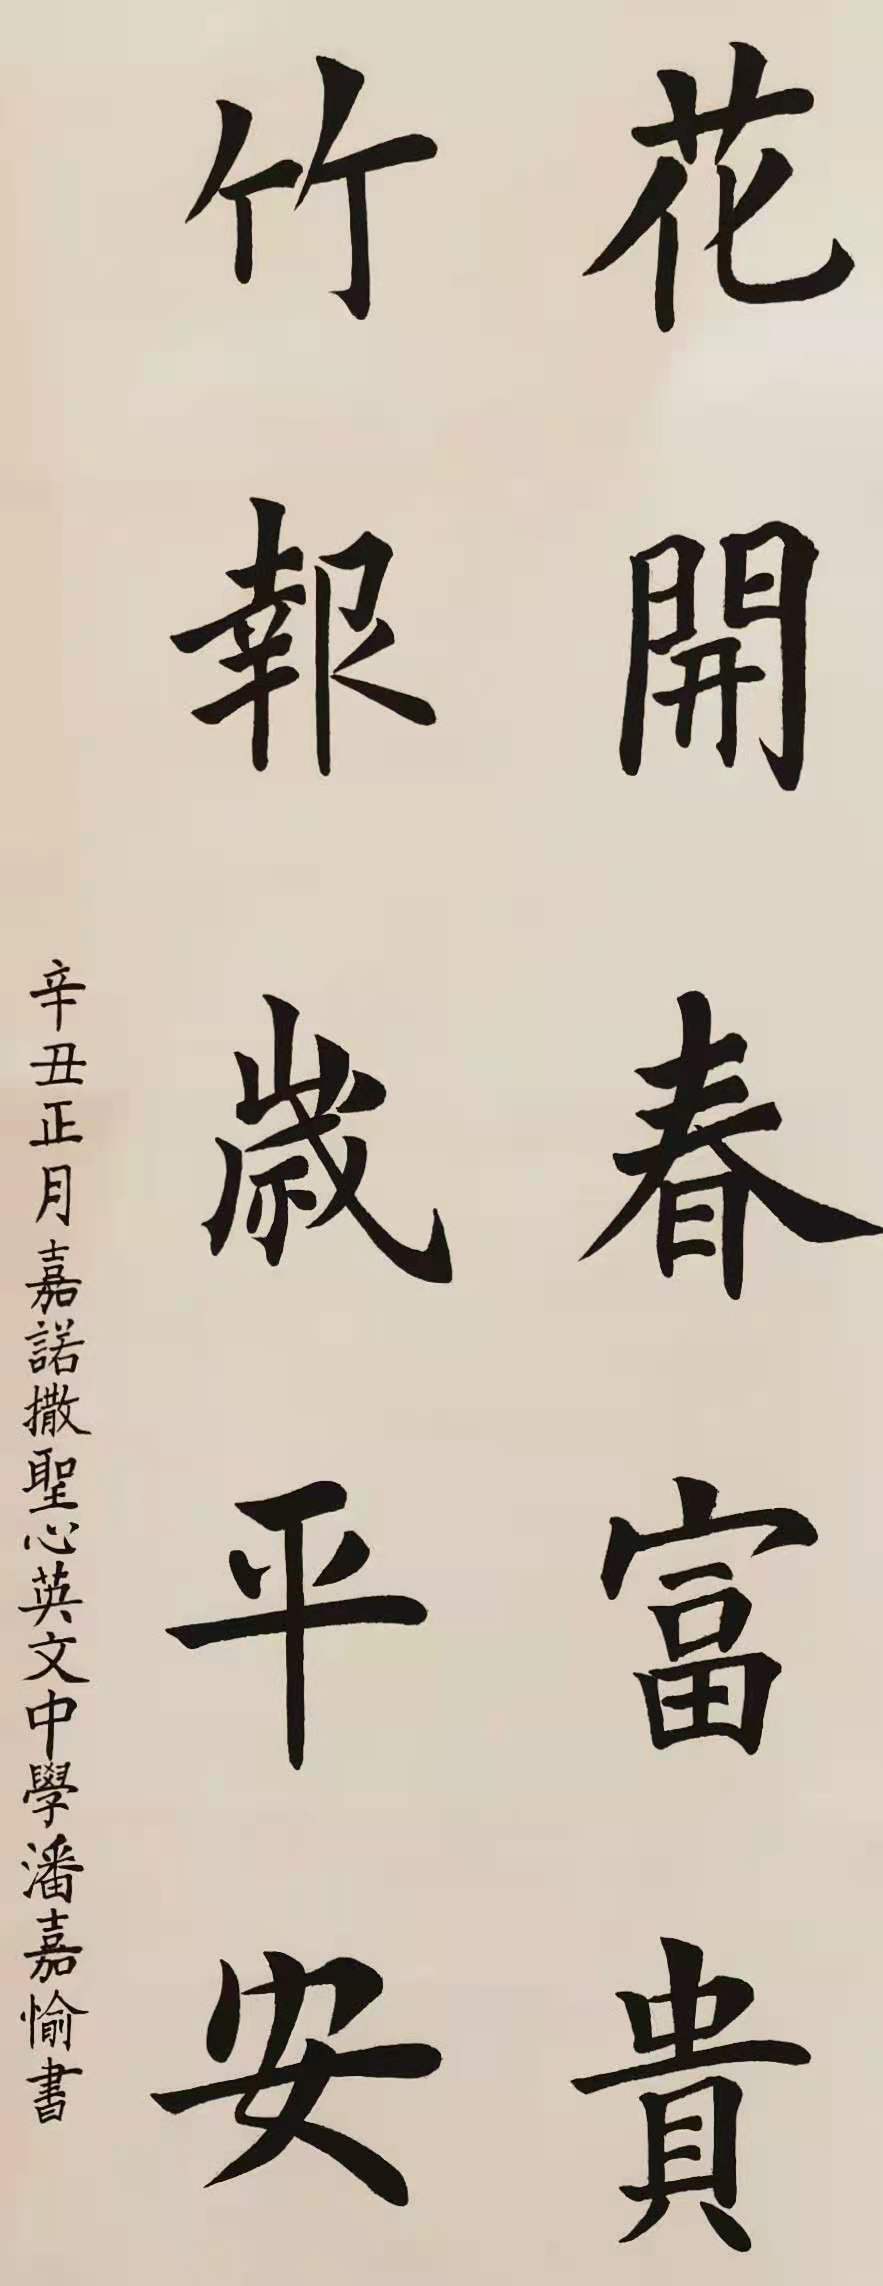 花開春富貴
竹報歲平安
辛丑正月嘉諾撒聖心英文中學潘嘉愉書